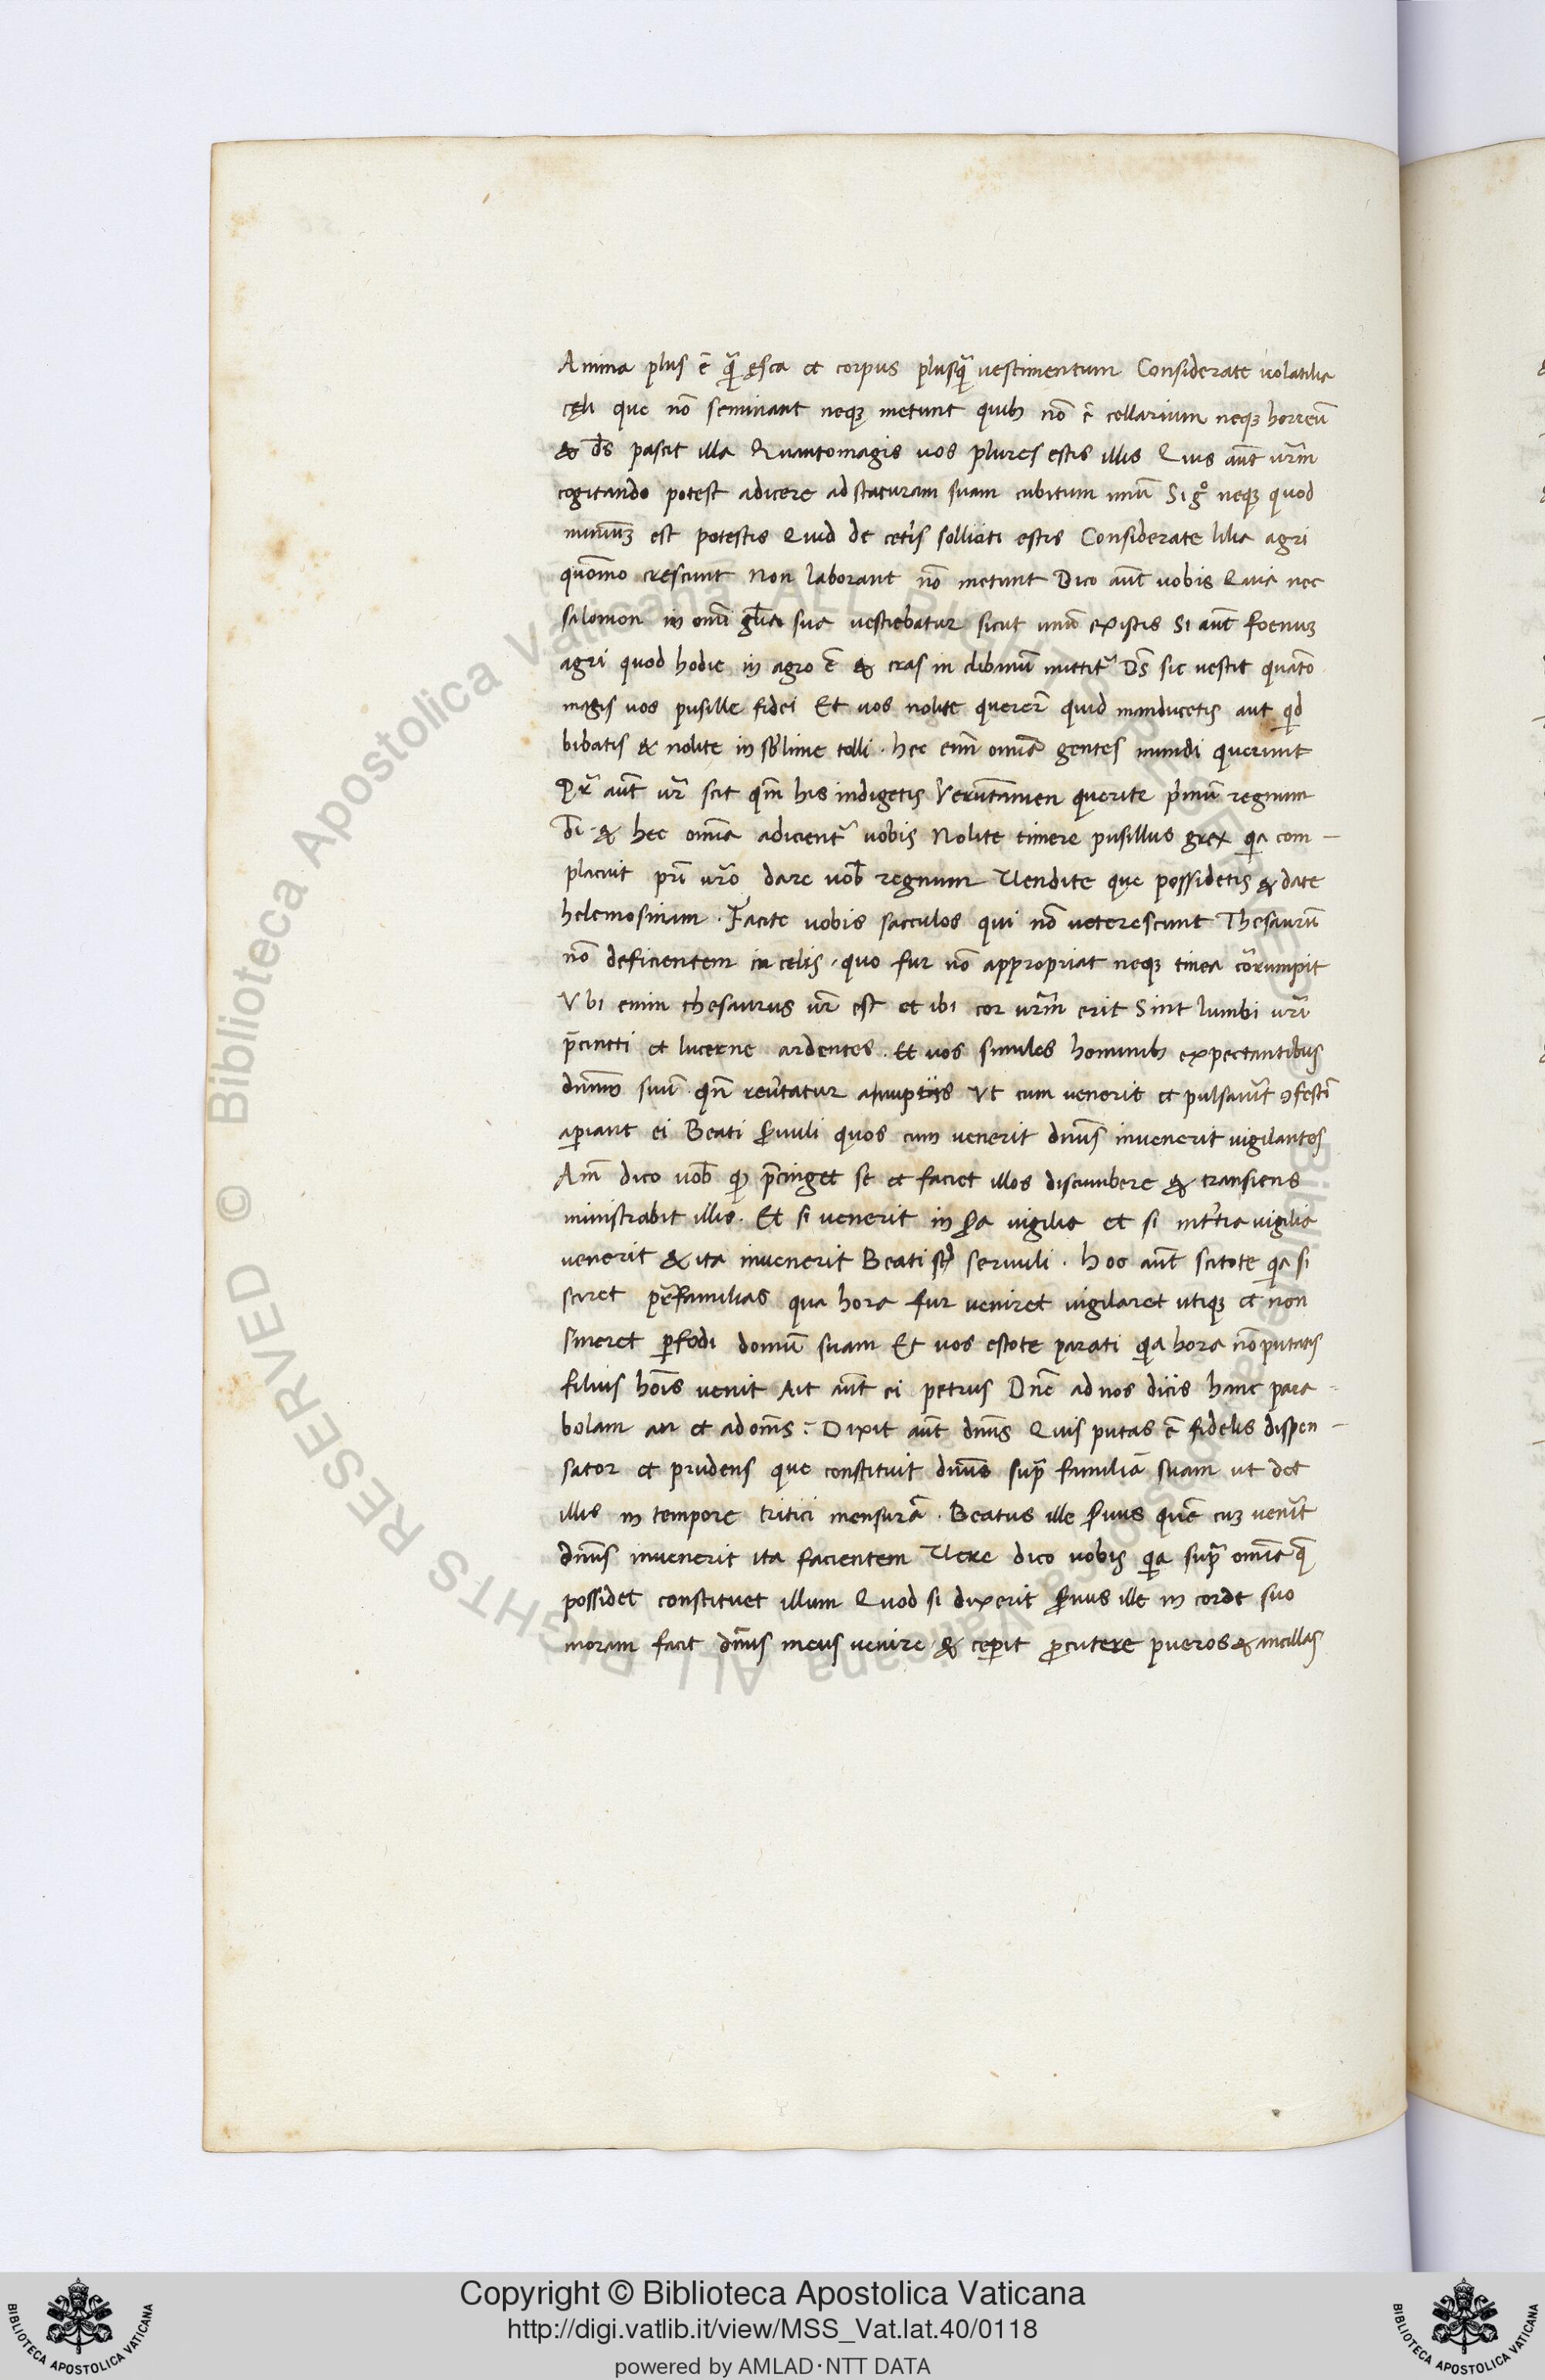 Anima plus ē quā̃ ęsca et corpus plusquā̃ vestimentum Considerate volatilia
cęli que nō seminant neqꝫ metunt quibꝫ nō ē cellarium neqꝫ horreū
& ds̄ pascit illa Quantomagis vos plures estis illis Quis aūt vr̄m
cogitando potest adicere ad staturam suam cubitum unū Si gͦ neqꝫ quod
minimꝫ est potestis Quid de cet̄is solliciti estis Considerate lilia agri
quōmo crescunt Non laborant nō metunt Dico aūt vobis Quia nec
salomon in om̄i glīa sua vestiebatur sicut unū ex istis Si aūt foenuꝫ
agri quod hodie in agro ē & cras in clibanū mittit̃ Ds̄ sic vestit quāto
magis vos pusille fidei Et vos nolite querer̄ quid manducetis aut qͥd
bibatis & nolite in sb̄lime tolli · hec enī omīa gentes mundi querunt
Pr̄ aūt vr̄ scit qm̄ his indigetis Verūtamen querite pͥmū regnum
Dī · & hec omīa adicient̃ vobis Nolite timere pusillus grex qͥa com-
placuit prī vr̄o dare vob̄ regnum Vendite que possidetis & date
helemosinam · Facite vobis sacculos qui nō veterescunt Thesaurū
nō deficientem in celis · quo fur nō appropriat neqꝫ tinea cōrumpit
Vbi enim thesaurus vr̄ est et ibi cor vr̄m erit Sint lumbi vr̄i
p̄cincti et lucerne ardentes · Et vos similes hominibꝫ expectantibus
dnm̄ suū qn̄ rev̄tatur a nuptiis Vt cum venerit et pulsav̄it ꝯfestī
apiant ei Beati s̄vuli quos cum venerit dnūs invenerit vigilantes
Am̄ dico vob̄ qꝫ p̄cinget se et faciet illos discumbere & transiens
ministrabit illis · Et si venerit in s̄a vigilia et si in t̄tia vigilia
venerit & ita invenerit Beati sūt servuli · hoc aūt scitote qͥa si
sciret pr̄familias qua hora fur veniret vigilaret utiqꝫ et non
sineret ꝑfodi domū suam Et vos estote parati qͥa hora nō putatis
filius hoīs venit Ait aūt ei petrus Dnē ad nos dicis hanc para-
bolam an et ad om̄s : Dixit aūt dnūs Quis putas ē fidelis dispen-
sator et prudens quē constituit dnūs supͣ familiā suam ut det
illis in tempore tritici mensurā · Beatus ille s̄vus quē cuꝫ ven̄it
dnūs invenerit ita facientem Vere dico vobis qͥa supͣ omīa q̄
possidet constituet illum Quod si dixerit s̄vus ille in corde suo
moram facit dnūs meus venire · & cep̄it ꝑcutere pueros & ancillas
Copyright © Biblioteca Apostolica Vaticana
http://digi.vatlib.it/view/MSS_Vat.lat.40/0118
powered by AMLAD·NTT DATA